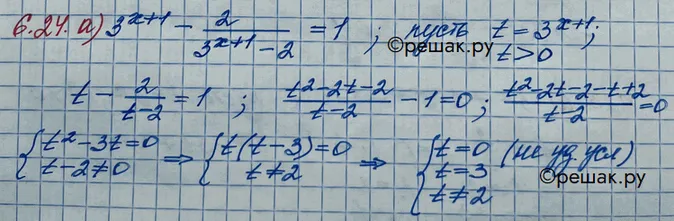 6.24. а) 3^{x+1} - \frac{2}{3^{x+1}-2} = 1 ; пусть t = 3^{x+1}; t>0
©решак.ру
t - \frac{2}{t-2} = 1 ; \frac{t^2-2t-2}{t-2} - 1 = 0 ; \frac{t^2-2t-2-t+2}{t-2} = 0
{ t^2-3t=0 ; t-2≠0 ⇒ { t(t-3)=0 ; t≠2 ⇒ { t=0 (не уд. усл) ; t=3 ; t≠2
©решак.ру